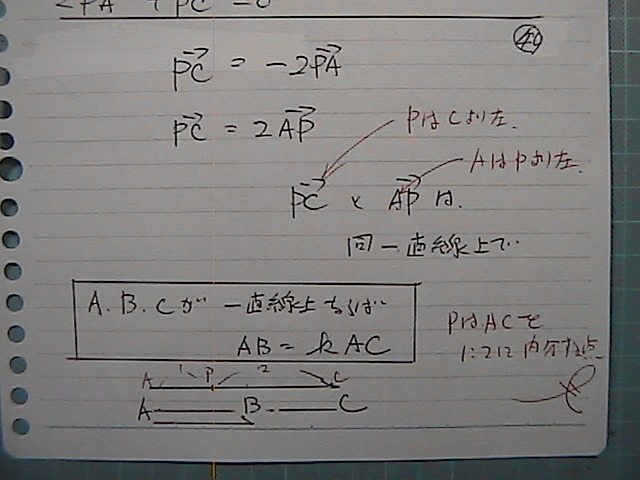 2PA + PC = 0
㊵
PC→ = -2PA→
PC→ = 2AP→
PはCより左.
AはPより左.
PC→ と AP→ は.
同一直線上で…
A.B.Cが 一直線上ならば
AB = kAC
PはACを
1:2に内分する点
A 1 P 2 C
A B C